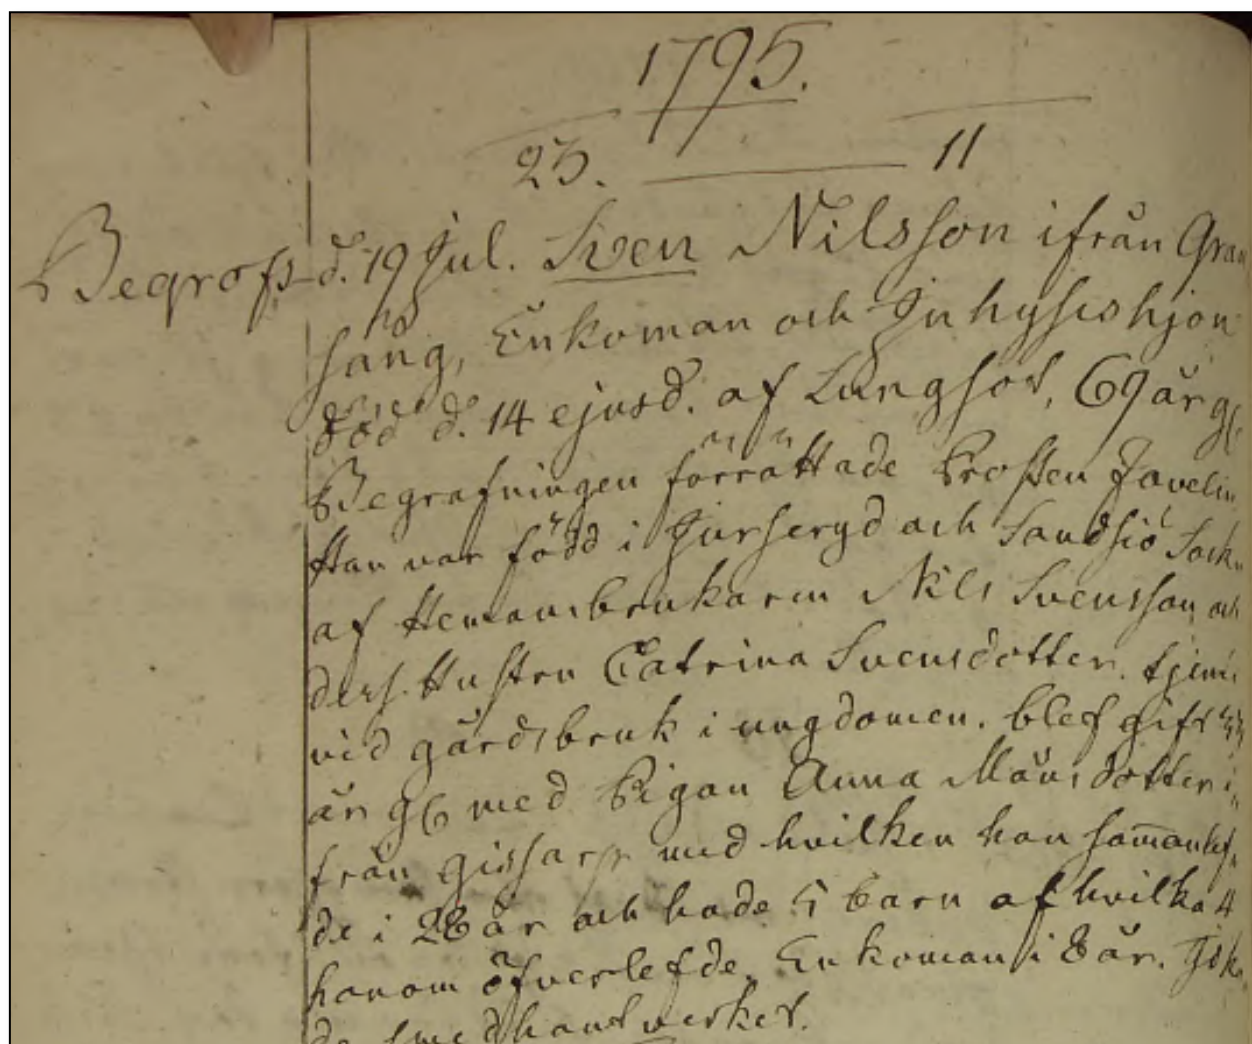 1795.
23. 11
Begrofs d. 19 Jul. Sven Nilsson ifrån Gran
häng, Enkoman och Inhyses hjon
död d. 14 ejusd. af Lungsot, 69 år gl
Begrafningen förrättade Prosten Javelin
Han var född i Jurseryd och Sandsjö Sockn
af Hemansbrukaren Nils Svensson och
defs. Hustru Catrina Svensdotter. tjent
vid gårdsbruk i ungdomen. blef gift
år gl med Pigan Anna Månsdotter i
från med hvilken han samanlef
de i 28 år och hade 5 barn af hvilka 4
honom öfverlefde. Enkoman i 8 år. Idka
de smedhantverket.